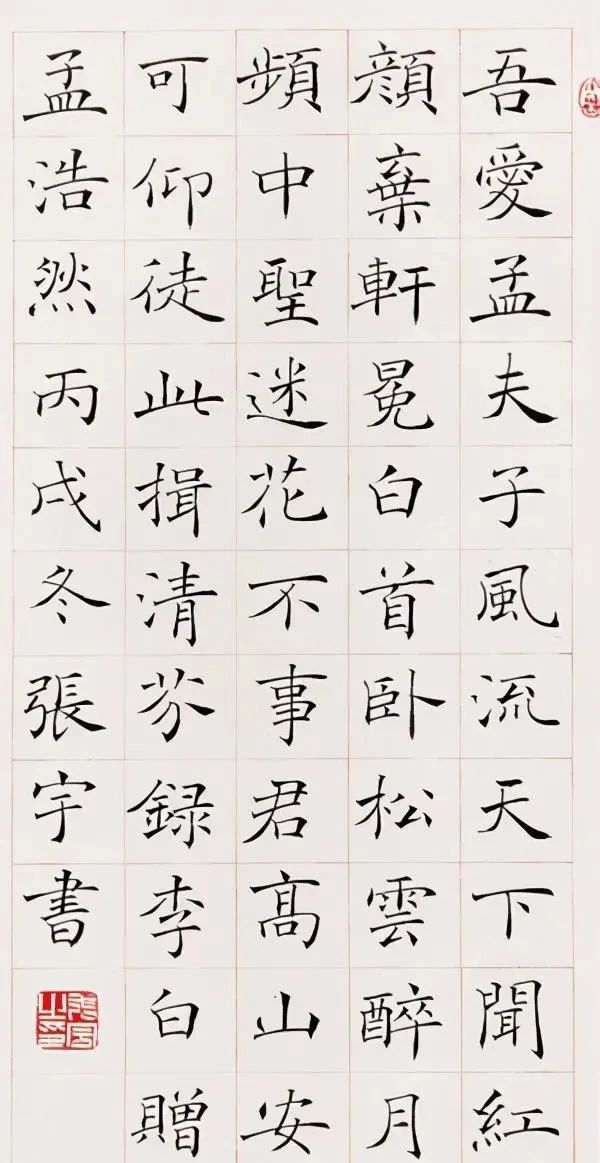 吾愛孟夫子風流天下聞紅
顔棄軒冕白首卧松雲醉月
頻中聖迷花不事君髙山安
可仰徒此揖清芬録李白贈
孟浩然丙戌冬張宇書
張宇之印